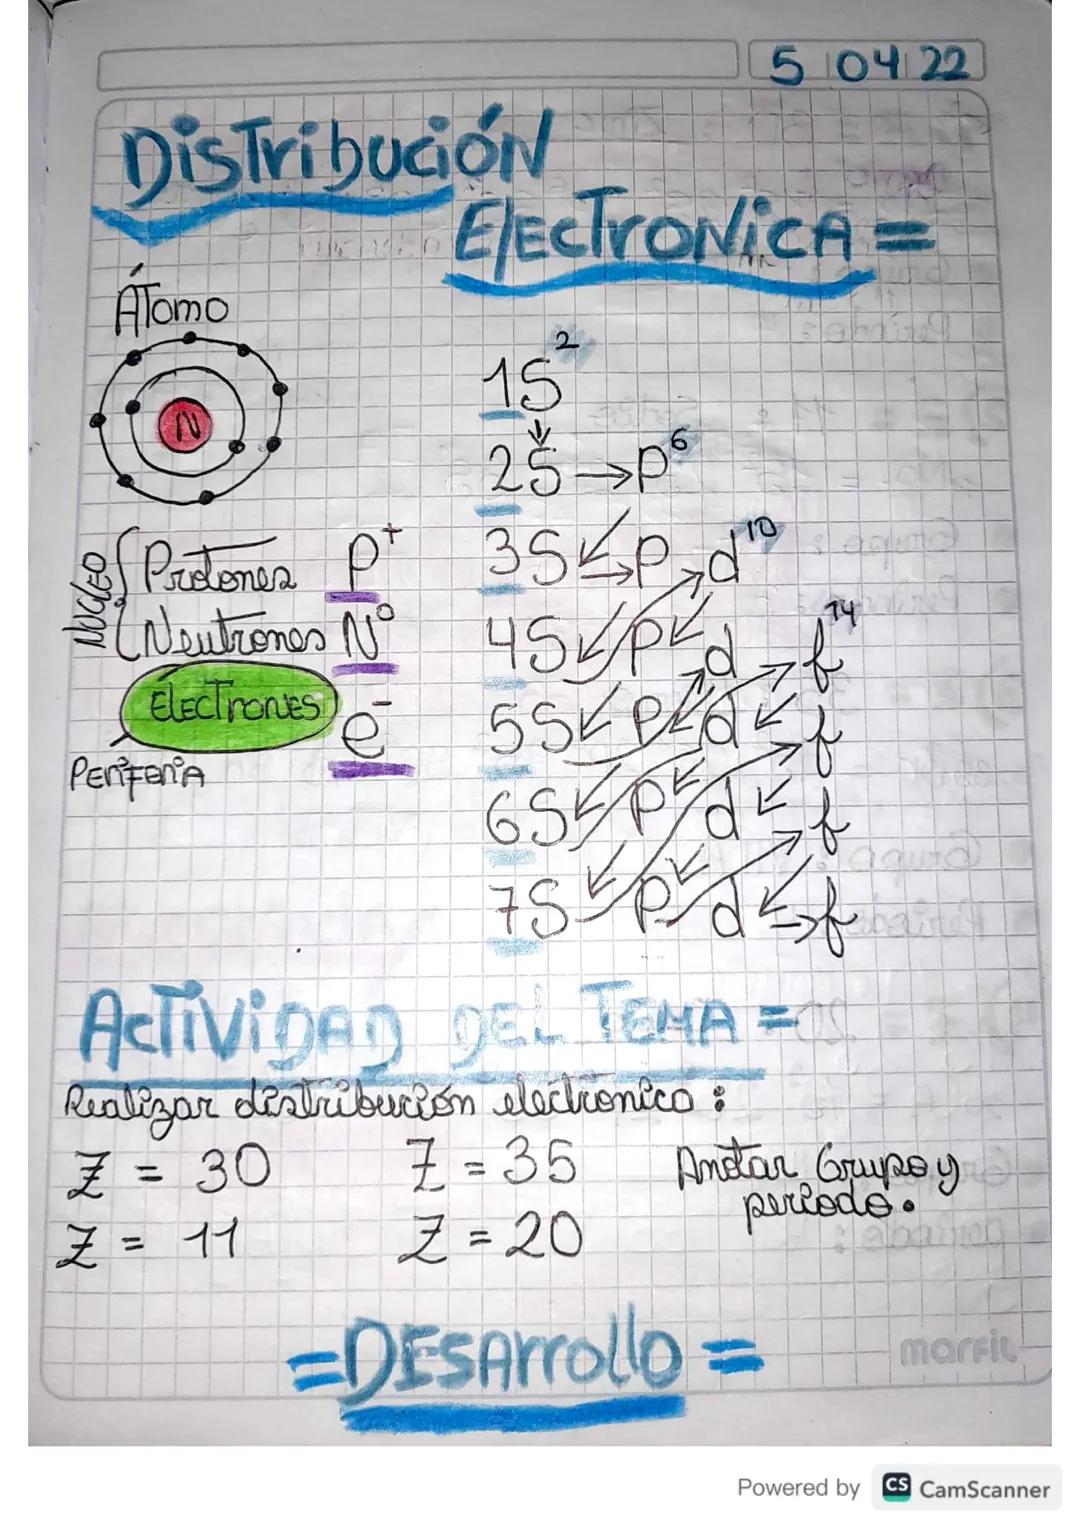 5 04 22
DisTribución
ElEcTroNicA =
ÁTomo
N
1S²
2S → p⁶
NúcleO { Protones p⁺
Neutrones N⁰
ElEcTronES e⁻
PEriFEriA
3S p d¹⁰
4S p d f¹⁴
5S p d f
6S p d f
7S p d f
AcTiViDAD DEL TEMA =
Realizar distribución electronica :
Z = 30 Z = 35 Anotar Grupo y
periodo.
Z = 11 Z = 20
= DESArrollo =
marfil
Powered by CS CamScanner